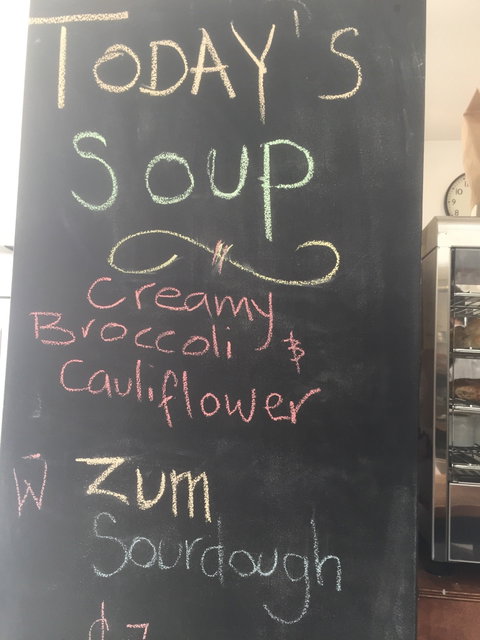 TODAY'S
SOUP
Creamy
Broccoli &
Cauliflower
W ZUM
Sourdough
$7
10
9
8